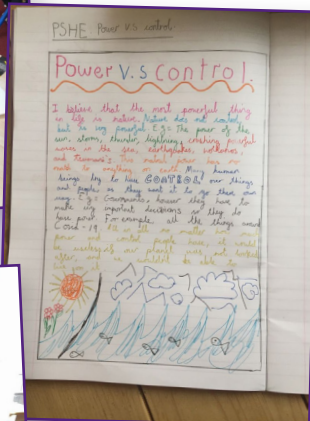 PSHE Power v.s control.
Power v.s control.
I believe that the most powerful thing
in life is nature. Nature does not control
but is very powerful. E.g = The power of the
sun, storms, thunder, lightning, crashing powerful
waves in the sea, earthquakes, volcanoes,
and Tsunamis! This natural power has no
to anything on earth. Many human
beings try to have control over things
and people as they want it to go their own
way. E.g = Governments, however they have to
make very important decisions so they do
have power. For example, all the things around
Covid-19. All in all no matter how much
power and control people have, it would
be if our planet was not looked
after, and we wouldn't be able to
live on it